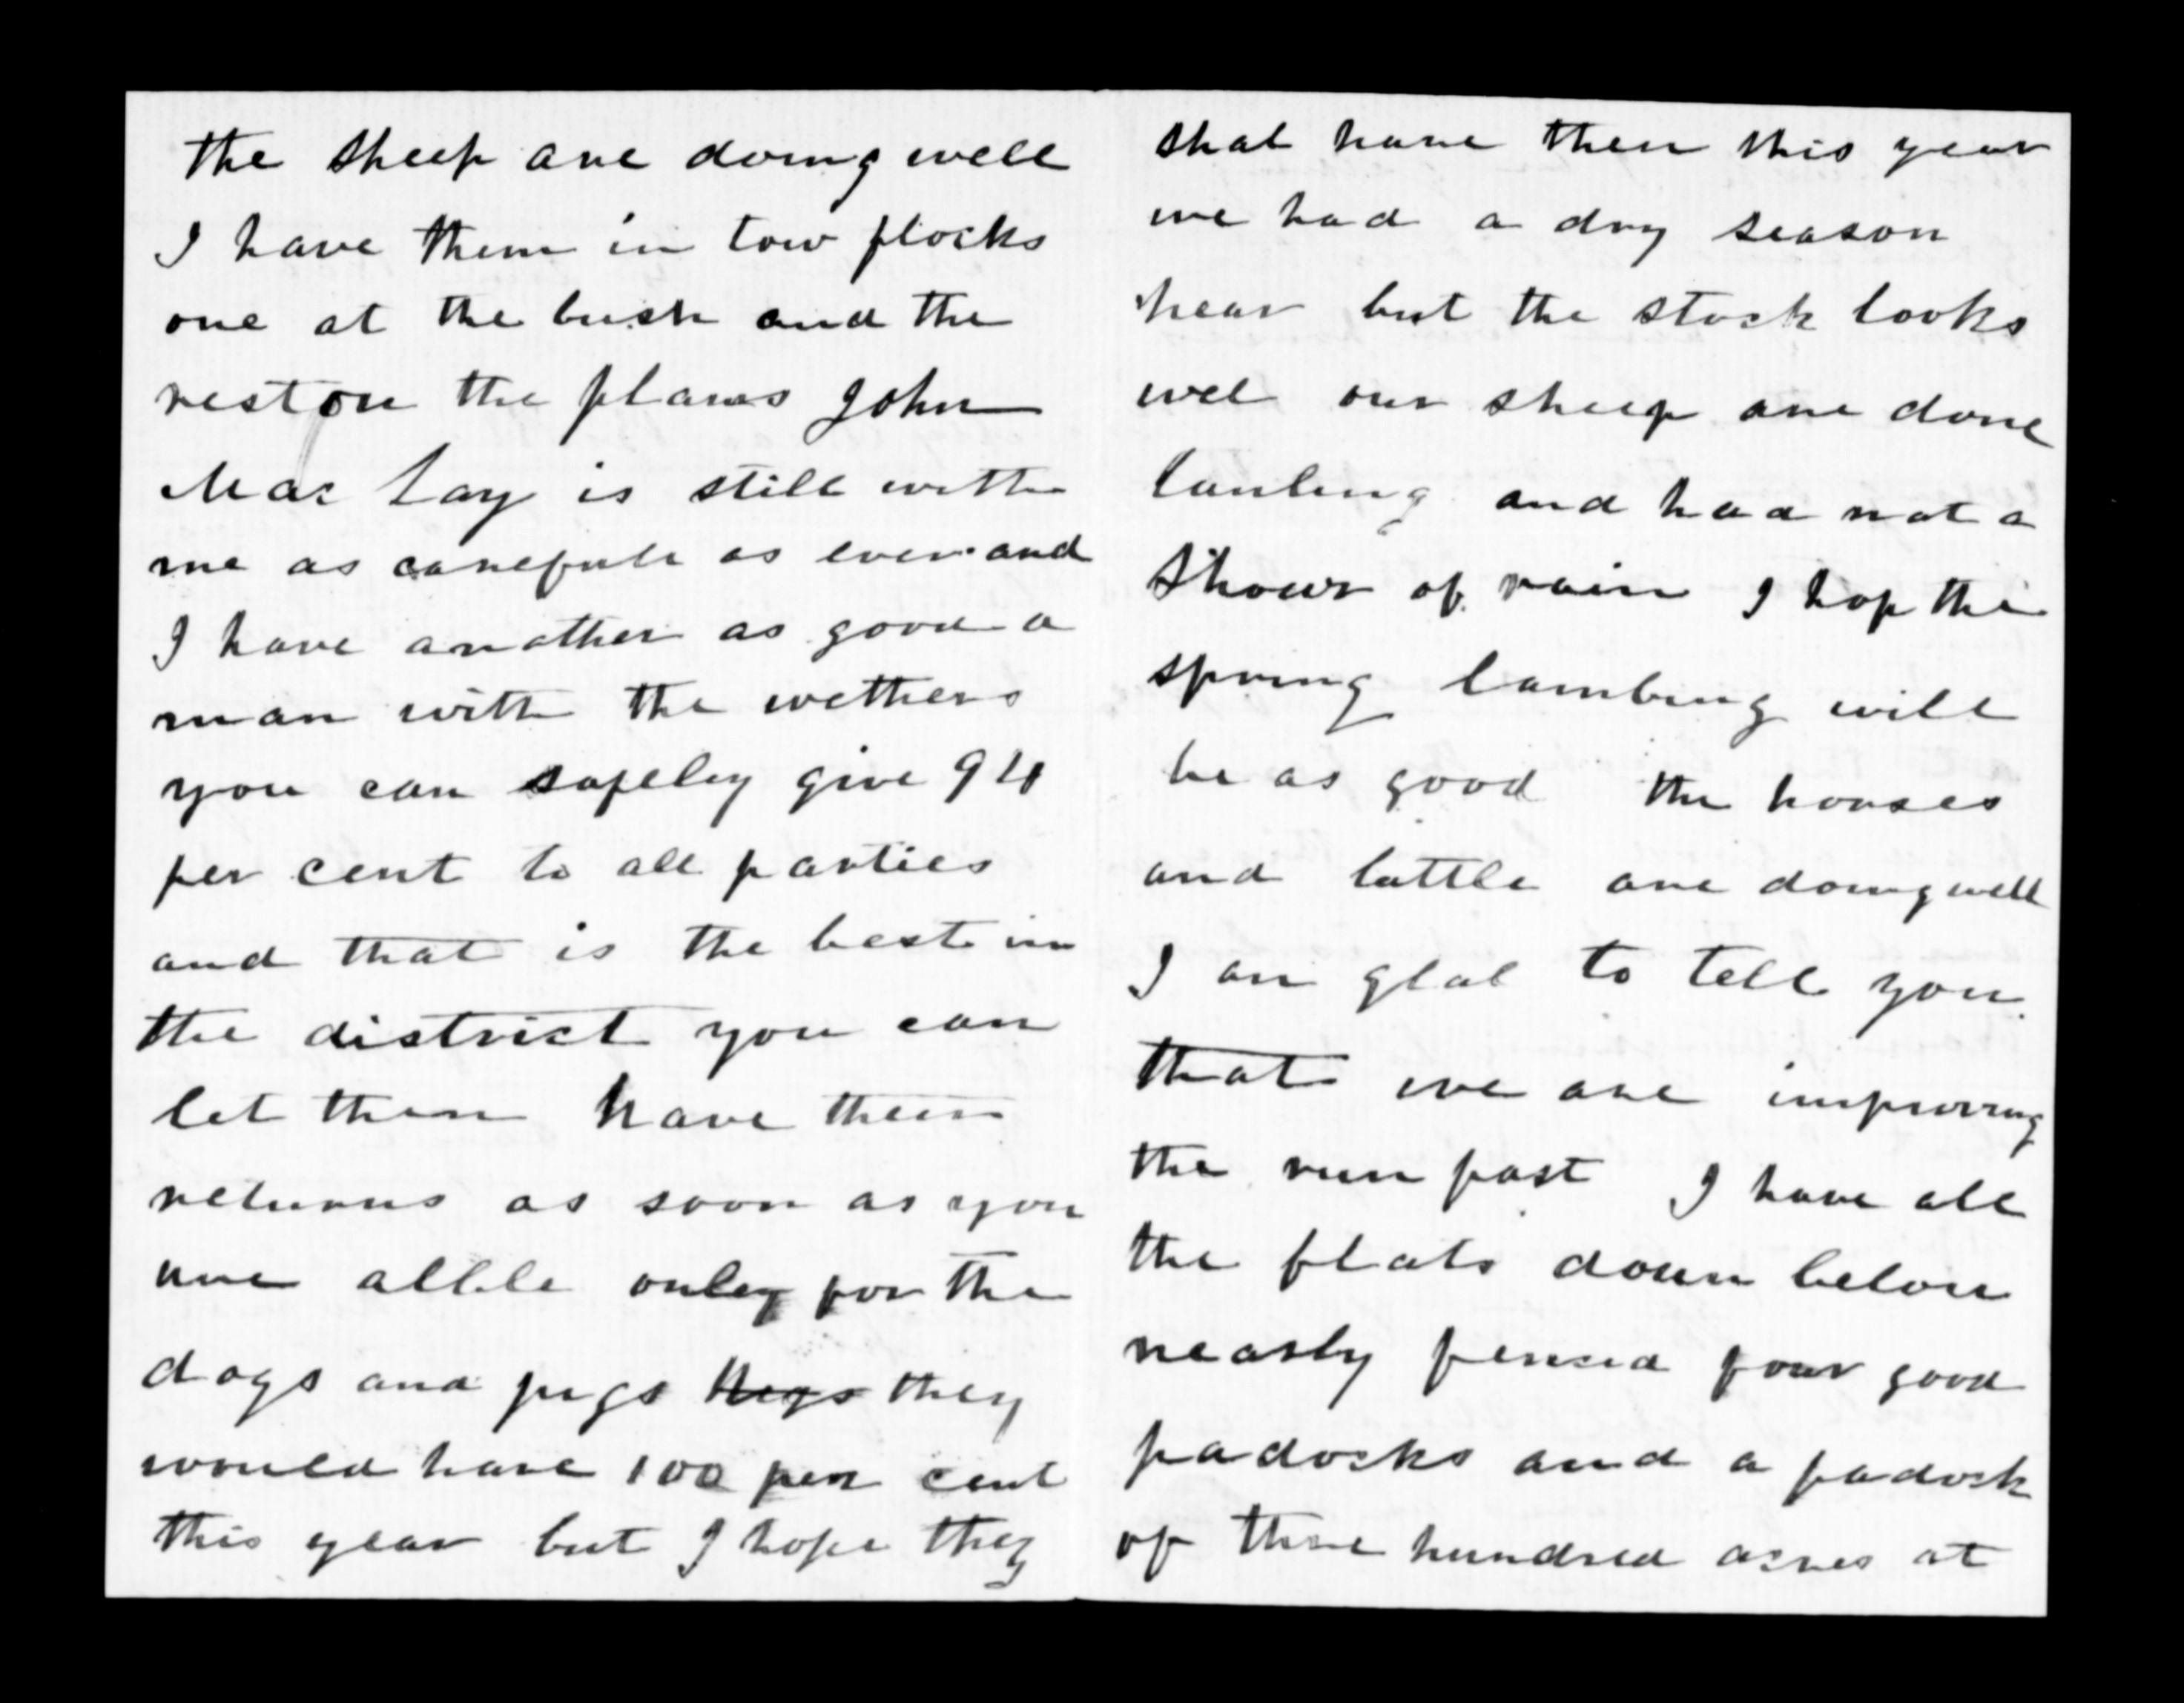 the sheep are doing well
I have them in tow flocks
one at the bush and the
rest on the plans John
Mac Lay is still with
me as carefull as ever and
I have another as good a
man with the wethers
you can safeley give 94
per cent to all parties
and that is the best in
the district you can
let them have their
returns as soon as you
are allble onley for the
dogs and pigs they
would have 100 per cent
this year but I hope they
shal have then this year
we had a dry season
hear but the stock looks
wel our sheep are done
and had not a
shour of rain I hop the
spring lambing will
be as good the horses
and are doing well
I am glad to tell you
that we are improving
the run fast I have all
the flats down below
nearly fenced four good
padocks and a padock
of three hundred acres at